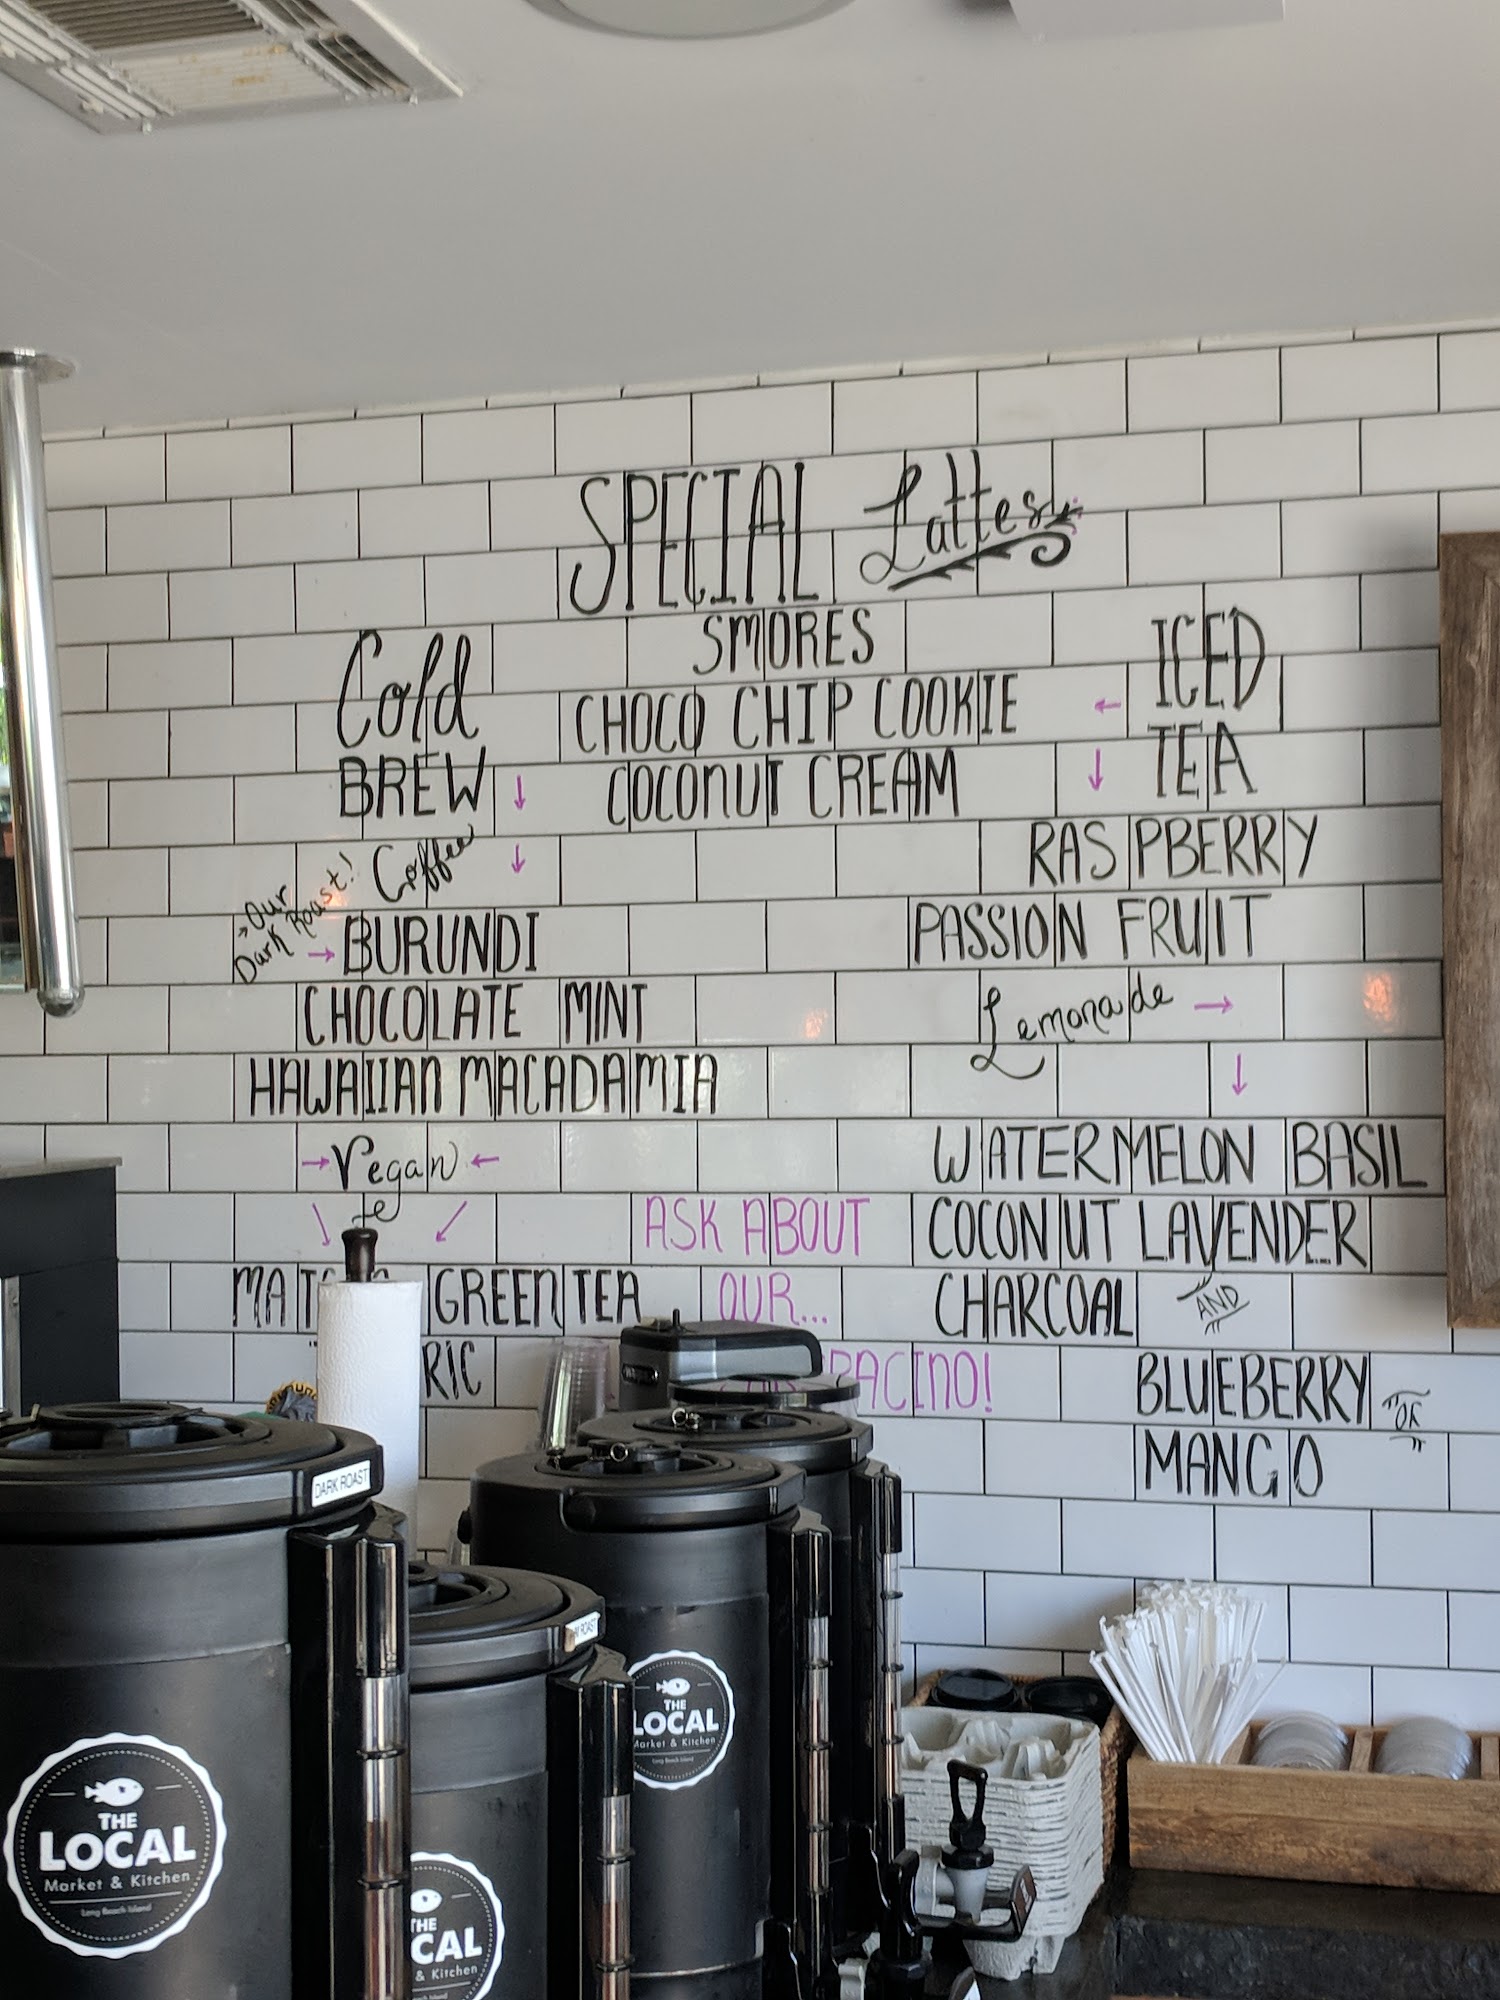 SPECIAL Lattes
SMORES
CHOCO CHIP COOKIE
COCONUT CREAM
Cold
BREW
Coffee
Our
Dark Roast!
BURUNDI
CHOCOLATE MINT
HAWAIIAN MACADAMIA
Vegan
GREEN TEA
ASK ABOUT
OUR...
ICED
TEA
RASPBERRY
PASSION FRUIT
Lemonade
WATERMELON BASIL
COCONUT LAVENDER
CHARCOAL AND
BLUEBERRY OR
MANGO
DARK ROAST
THE
LOCAL
Market & Kitchen
Long Beach Island
THE
& Kitchen
THE
LOCAL
Market & Kitchen
Long Beach Island